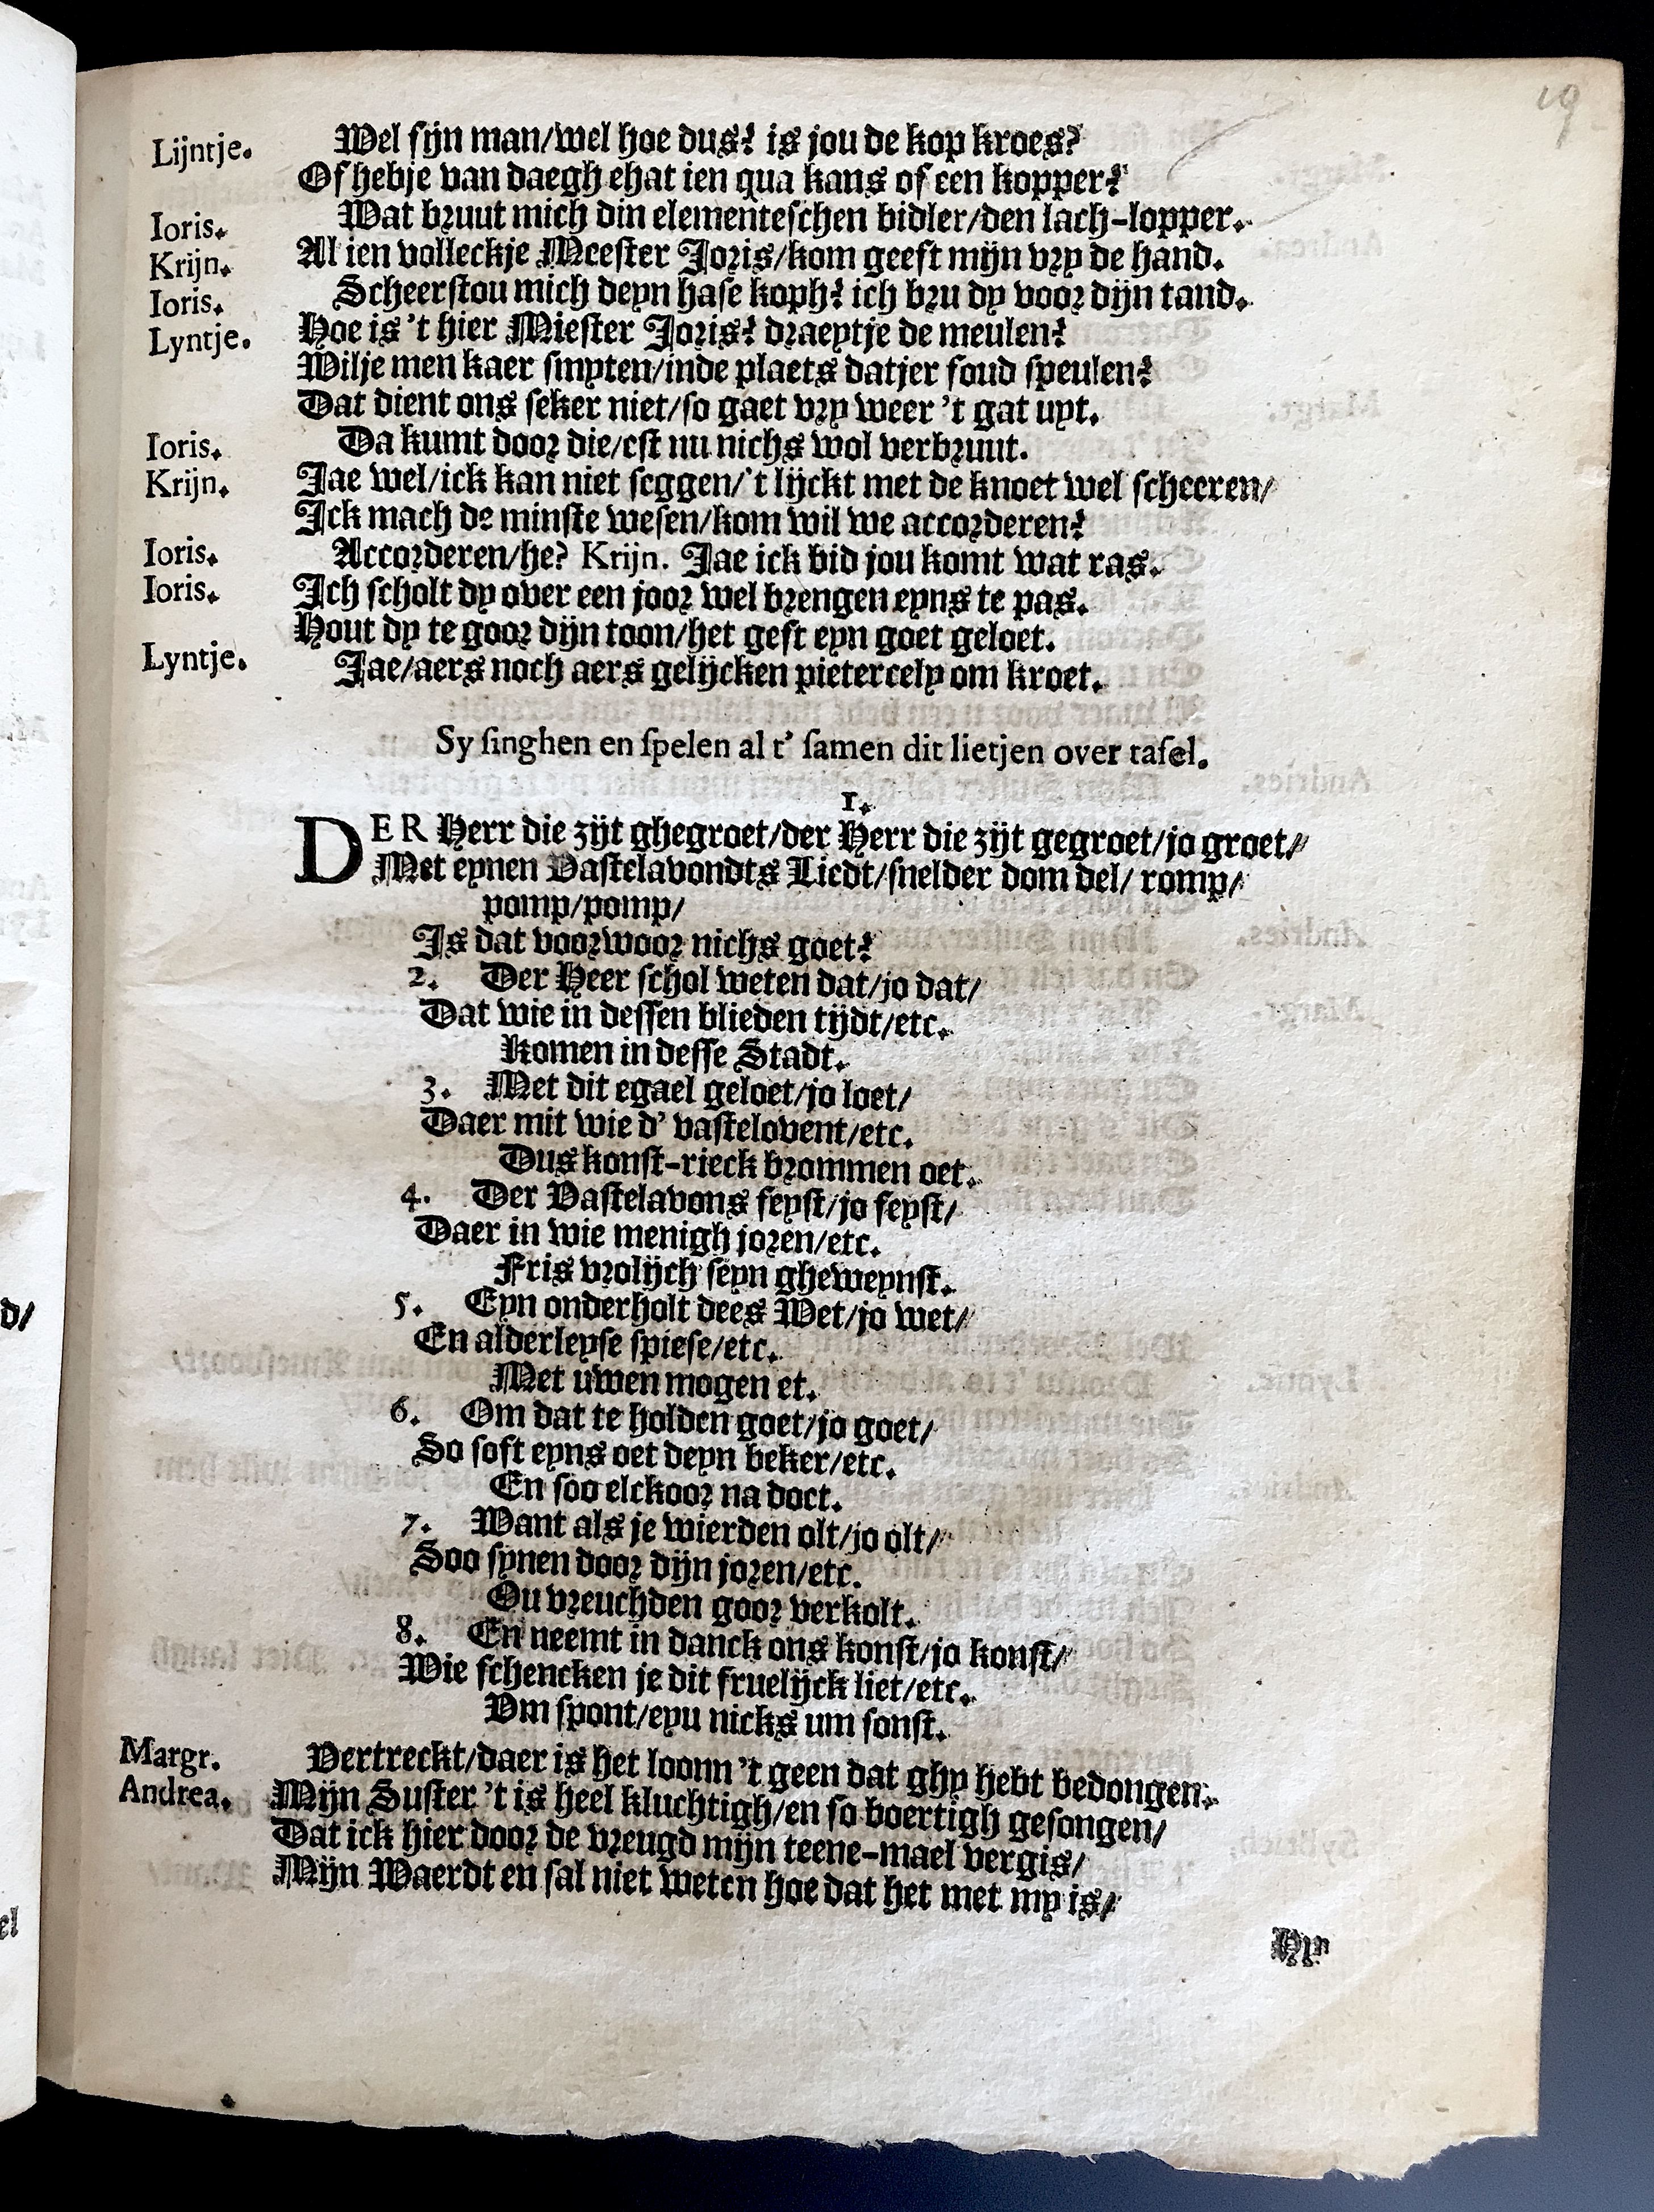 19
Lijntje. Wel sijn man/wel hoe dus? is jou de kop kroes?
Of hebje van daegh ehat ien qua kans of een kopper?
Ioris. Wat bruut mich din elementeschen bidler/den lach-lopper.
Krijn. Al ien volleckje Meester Joris/kom geeft mijn vry de hand.
Ioris. Scheerstou mich deyn hase koph? ich bru dy voor dijn tand.
Lyntje. Hoe is 't hier Miester Joris? draeytje de meulen?
Wilje men kaer smyten/inde plaets datjer soud speulen?
Dat dient ons seker niet/so gaet vry weer 't gat uyt.
Ioris. Da kumt door die/est nu nichs wol verbruut.
Krijn. Jae wel/ick kan niet seggen/'t lijckt met de knoet wel scheeren/
Ick mach de minste wesen/kom wil we accorderen?
Ioris. Accorderen/he? Krijn. Jae ick bid jou komt wat ras.
Ioris. Ich scholt dy over een joor wel brengen eyns te pas.
Hout dy te goor dijn toon/het geft eyn goet geloet.
Lyntje. Jae/aers noch aers gelijcken pietercely om kroet.
Sy singhen en spelen al t' samen dit lietjen over tafel.
1.
DER Herr die zijt ghegroet/der Herr die zijt gegroet/jo groet/
Met eynen Vastelavondts Liedt/snelder dom del/ romp/
pomp/pomp/
Is dat voorwoor nichs goet?
2. Der Heer schol weten dat/jo dat/
Dat wie in dessen blieden tijdt/etc.
Komen in desse Stadt.
3. Met dit egael geloet/jo loet/
Daer mit wie d' vastelovent/etc.
Dus konst-rieck brommen oet.
4. Der Vastelavons feyst/jo feyst/
Daer in wie menigh joren/etc.
Fris vrolijch seyn gheweynst.
5. Eyn onderholt dees Wet/jo wet/
En alderleyse spiese/etc.
Met uwen mogen et.
6. Om dat te holden goet/jo goet/
So soft eyns oet deyn beker/etc.
En soo elckoor na doet.
7. Want als je wierden olt/jo olt/
Soo synen door dijn joren/etc.
Ou vreuchden goor verkolt.
8. En neemt in danck ons konst/jo konst/
Wie schencken je dit fruelijck liet/etc.
Vm spont/eyu nicks um sonst.
Margr. Vertreckt/daer is het loonn 't geen dat ghy hebt bedongen.
Andrea. Mijn Suster 't is heel kluchtigh/en so boertigh gesongen/
Dat ick hier door de vreugd mijn teene-mael vergis/
Mijn Waerdt en sal niet weten hoe dat het met my is/
Hyn